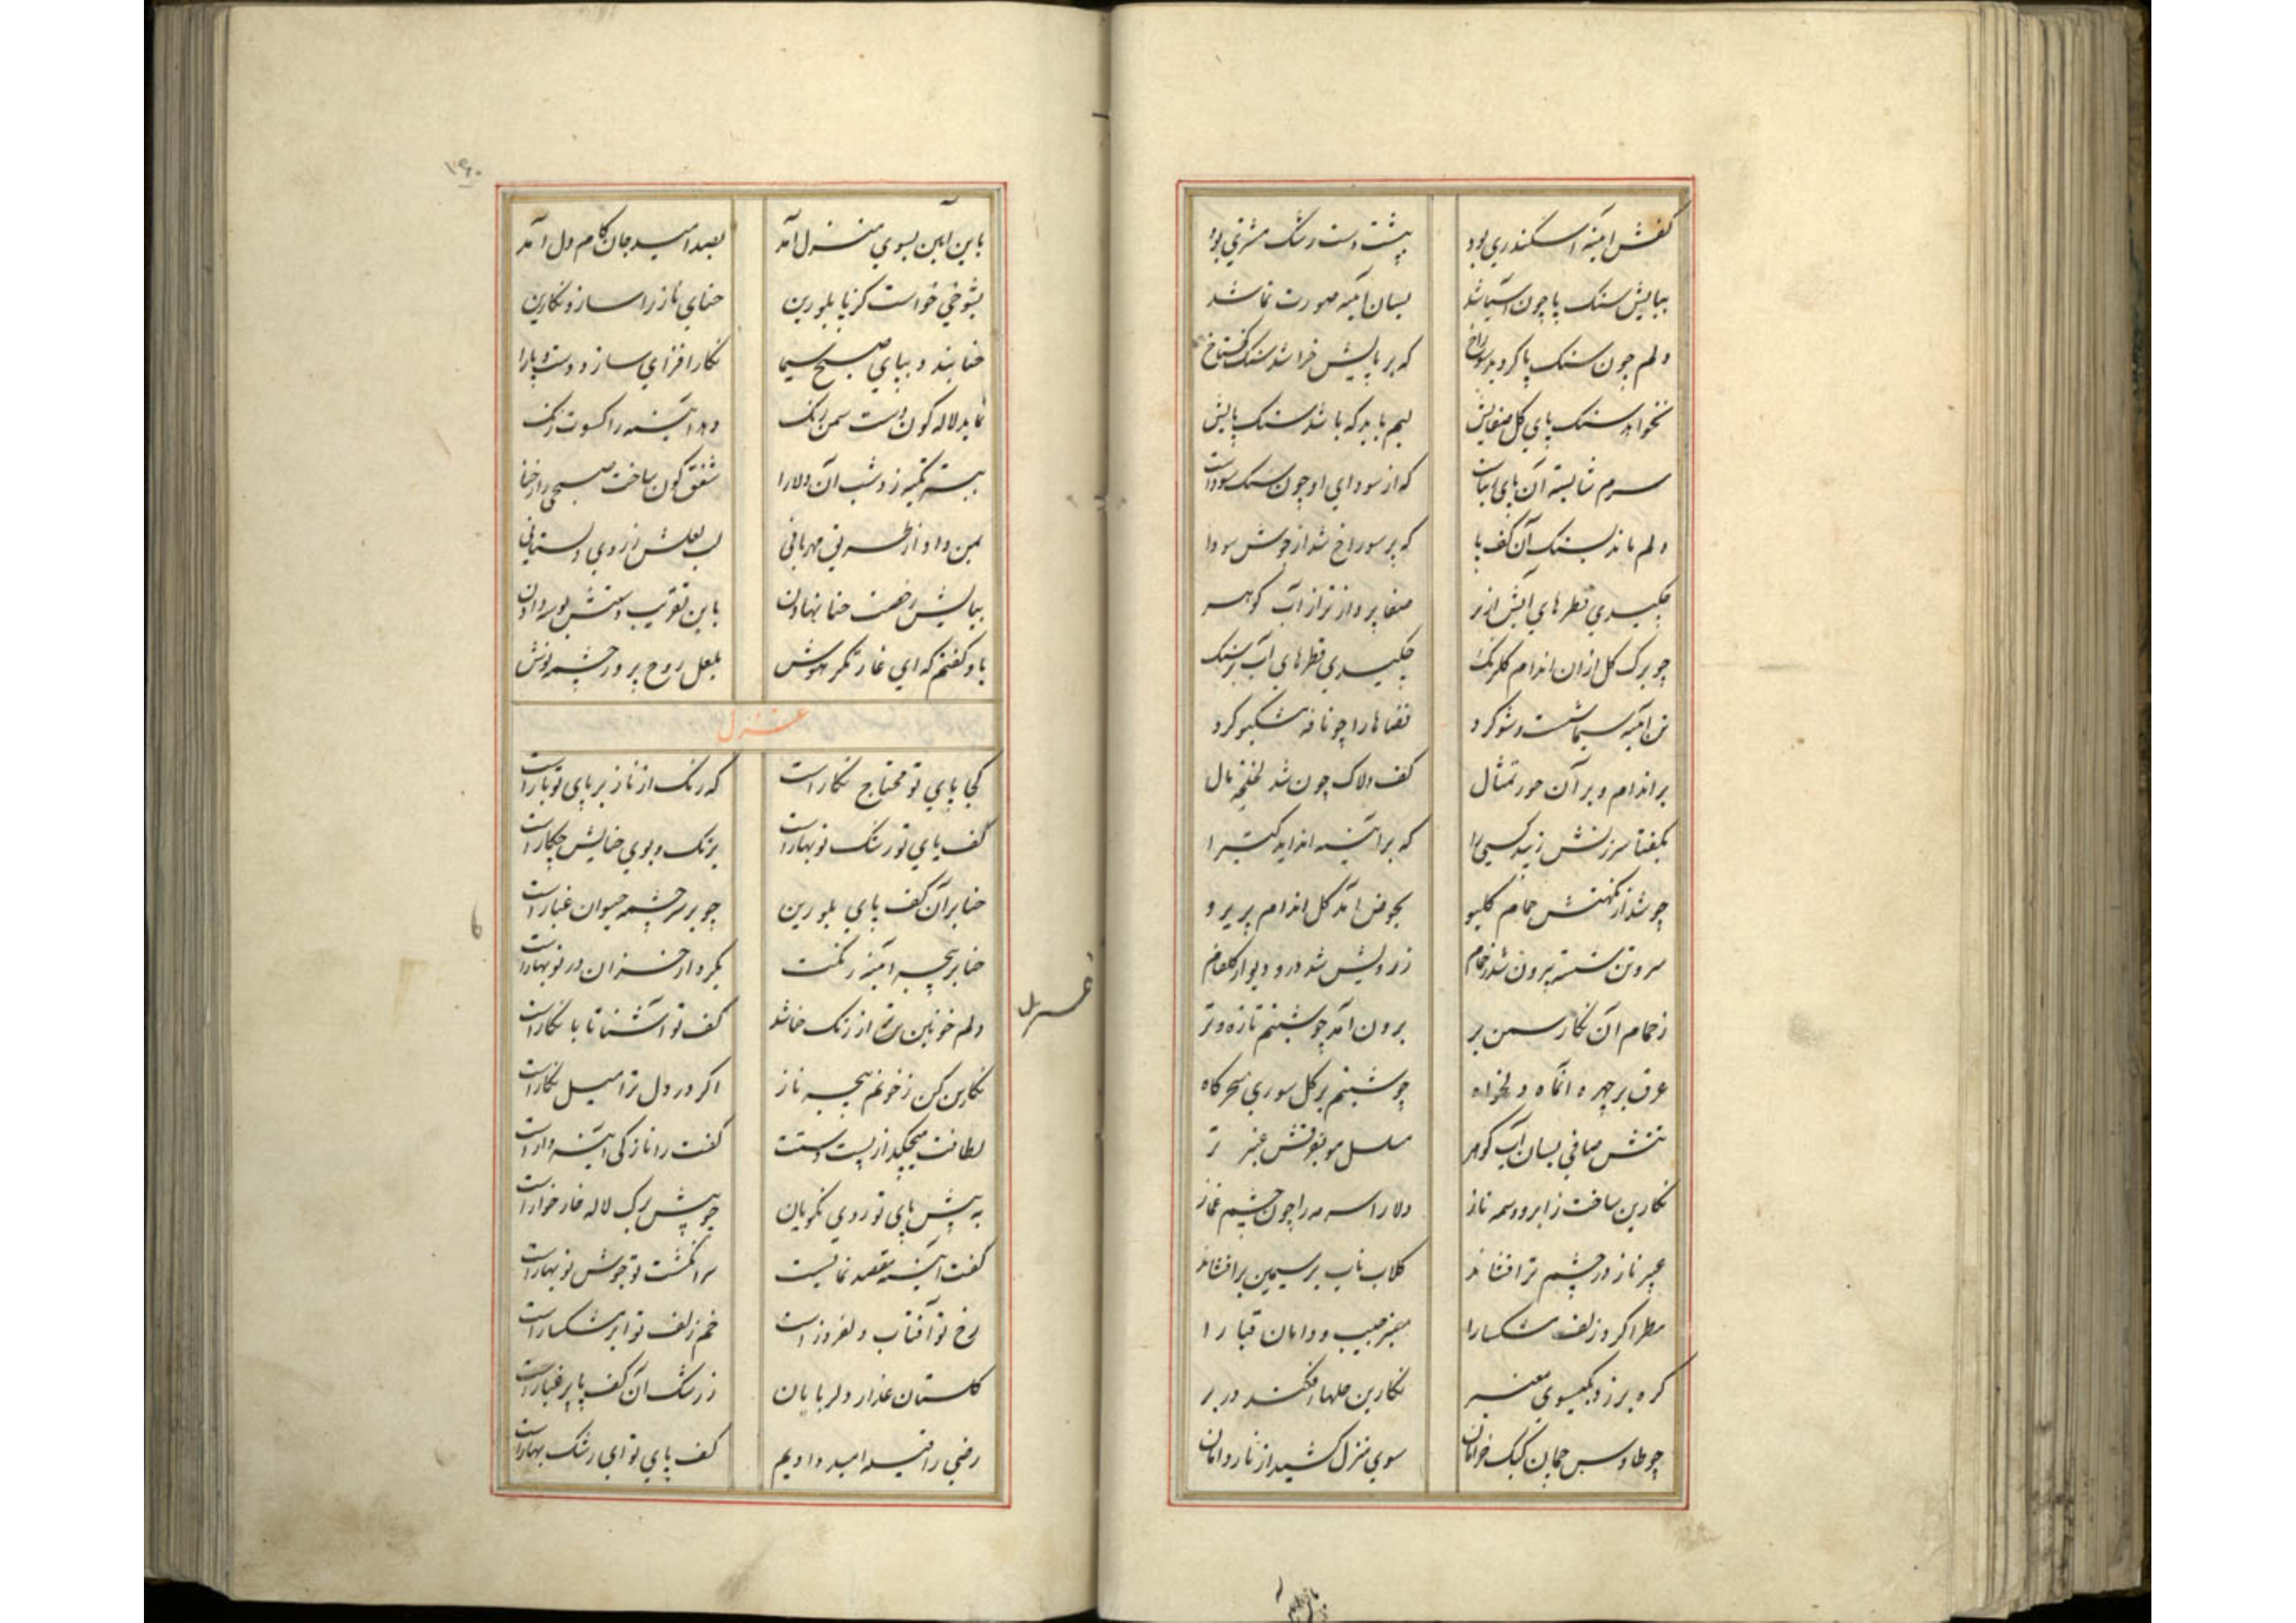 کفش آینه اسکندری بود پشت دست رشک مشتری بود
بپایش سنک پا چون آشنا شد بسان آینه صورت نما شد
دلم چون سنک پا کردید سوراخ که بر پایش خراشد سنک کستاخ
نخواهد سنک پای کل صفایش لبم باید که باشد سنک پایش
سرم شایسته آن پای است که از سودای او چون سنک سوداست
دلم ماند بسنک آن کف پا که پر سوراخ شد از جوش سودا
چکیدی قطرهای آبش از بر صفا پرداز تر از آب کوهر
چو برک کل از ان اندام کلرنک چکیدی قطرهای آب بر سنک
تن آینه سیما شست و شو کرد فضاها را چو نافه مشکبو کرد
بر اندام و بر آن حور تمثال کف دلاک چون شد لخلخه مال
بگفتا سرزنش زیبد کسی را که بر آینه اندازد
چو شد از نکهتش حمام کلبو بحوض آمد کل اندام پریرو
سر و تن شسته بیرون شد ز حمام ز رویش شد در و دیوار کلفام
ز حمام آن نکار سمن بر برون آمد چو شبنم تازه و تر
عرق بر چهره آن ماه دلخواه چو شبنم بر کل سوری سحرکاه
تنش صافی بسان آب کوهر مسلسل مو بنوش عنبر تر
نکارین ساخت ز ابرو وسمه ناز دلارا سرمه را چون چشم غماز
عبیر ناز در چشم تر افشاند کلاب ناب بر سیمین بر افشاند
مطرا کرد زلف مشکسا را معنبر جیب و دامان قبا را
کره بر زد بکیسوی معنبر نکارین حلها افکند در بر
چو طاوس چمان کبک خرامان سوی منزل کشید از ناز دامان
۱۶۰
باین آیین بسوی منزل آمد بصد امید جان کام دل آمد
بشوخی خواست کز پا بلورین حنای ناز را سازد نکارین
حنا بندد بپای صبح سیما نکار افزای سازد دست و پا را
نماید لاله کون دست سمن رنک دهد آیینه را کسوت زنک
ببستر تکیه زد شب آن دلارا شفق کون ساخت صبحی را ز حنا
بمن داد از طرف نی مهربانی لب لعلش ز روی دلستانی
بپایش رخصت حنا نهادن باین تقریب دستش بوسه دادن
باو کفتم که ای غارتکر هوش بلعل روح پرور چشمه نوش
غزل
کجا پای تو محتاج نکار است که رنک از ناز بر پای تو بار است
کف پای تو رشک نوبهار است برنک و بوی حنایش چکار است
حنا بر آن کف پای بلورین چو بر سرچشمه حیوان غبار است
حنا بر پنجه آینه رنکت بکردار خزان در نوبهار است
دلم خونین از رنک حنا شد کف تو آشنا تا با نکار است
نکارین کن ز خونم پنجه ناز اکر در دل ترا میل نکار است
لطافت میچکد از پشت دستت کفت را نازکی آیینه دار است
به پیش پای تو روی نکویان چو پیش برک لاله خار خوار است
کفت آیینه مقصد نماییست سر انکشت تو جوش نوبهار است
رخ تو آفتاب دلفروز است خم زلف تو ابر مشکبار است
کلستان عذار دلربایان ز رشک آن کف پا پر غبار است
رضی را فیه امید دادیم کف پای تو ای رشک بهار است
غزل